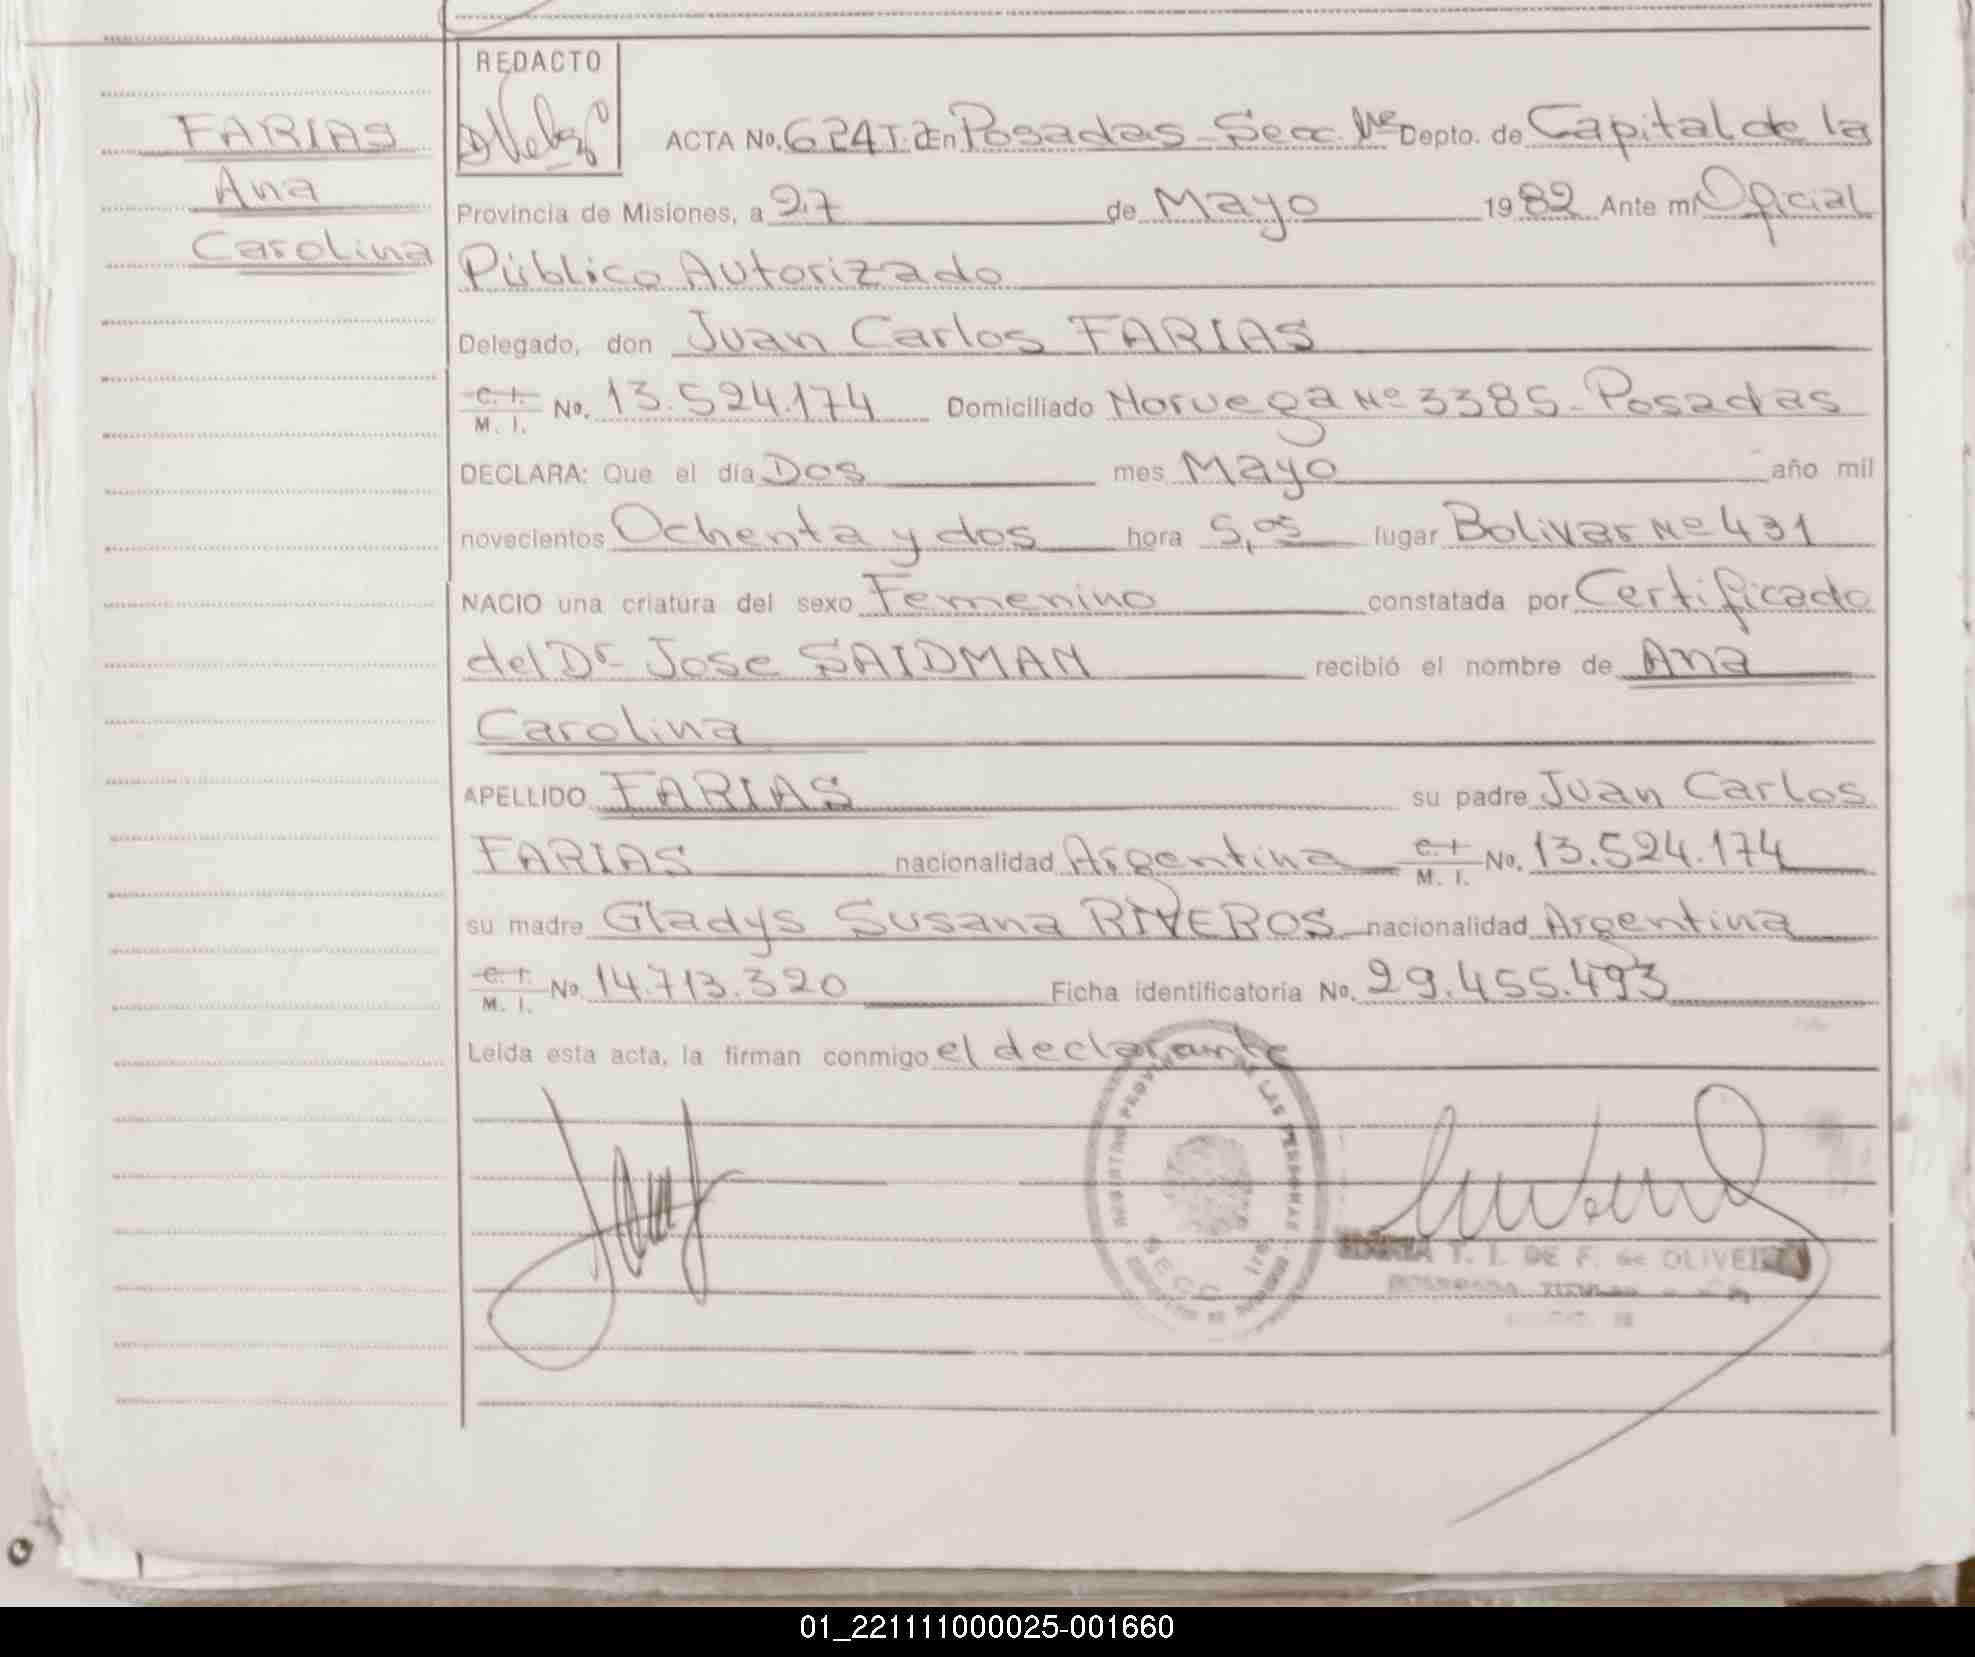 REDACTO
FARIAS
Ana
Carolina
ACTA No. 624 T. 2 En Posadas - Secc. 1ra Depto. de Capital de la
Provincia de Misiones, a 27 de Mayo 1982 Ante mí Oficial
Público Autorizado
Delegado, don Juan Carlos FARIAS
C. I. M. I. No. 13.524.174 Domiciliado Noruega Nº 3385 - Posadas
DECLARA: Que el día Dos mes Mayo año mil
novecientos Ochenta y dos hora 5,05 lugar Bolivar Nº 431
NACIO una criatura del sexo Femenino constatada por Certificado
del Dr Jose SAIDMAN recibió el nombre de Ana
Carolina
APELLIDO FARIAS su padre Juan Carlos
FARIAS nacionalidad Argentina C. I. M. I. No. 13.524.174
su madre Gladys Susana RIVEROS nacionalidad Argentina
C. I. M. I. No. 14.713.320 Ficha identificatoria No. 29.455.493
Leída esta acta, la firman conmigo el declarante
REGISTRO PROVINCIAL DE LAS PERSONAS
SECC. 1ra
MARIA T. I. DE F. de OLIVEIRA
01_221111000025-001660